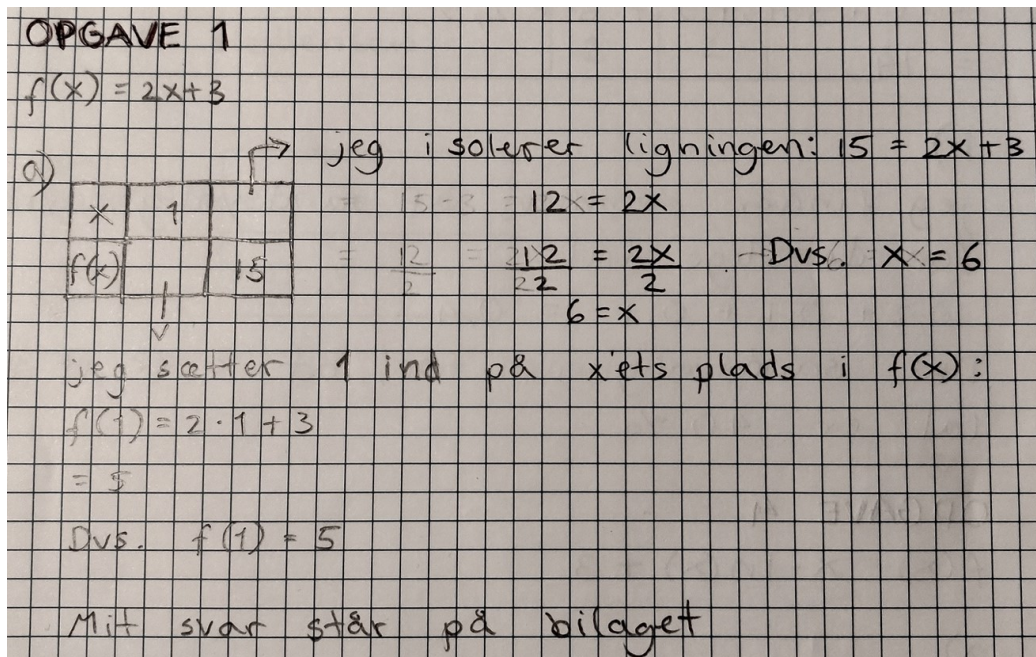 OPGAVE 1
f(x) = 2x+3
a)
jeg isolerer ligningen: 15 = 2x+3
x 1
12 = 2x
f(x) 15
12/2 = 2x/2 Dvs. x = 6
6 = x
jeg sætter 1 ind på x'ets plads i f(x):
f(1) = 2·1+3
= 5
Dvs. f(1) = 5
Mit svar står på bilaget